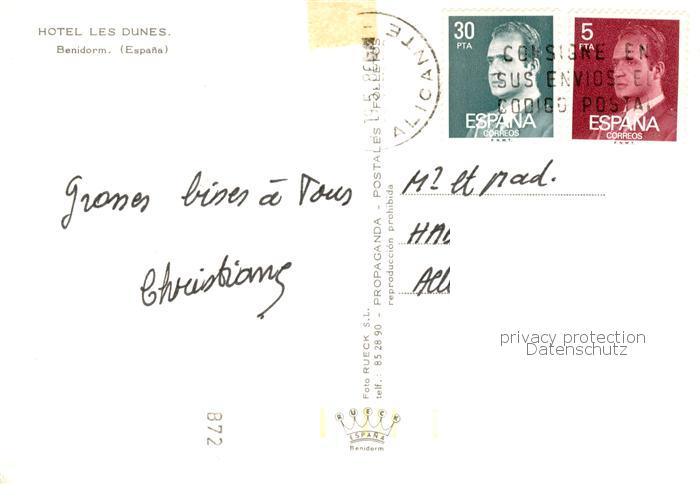 HOTEL LES DUNES.
Benidorm. (España)
Grosses bises à Tous
Christiane
872
Foto RUECK S.L.
telf.: 85 28 90 - PROPAGANDA - POSTALES Y FOLLETOS
reproducción prohibida
RUECK
ESPAÑA
Benidorm
ALICANTE
30
PTA
ESPAÑA
CORREOS
F.N.M.T.
5
PTA
ESPAÑA
CORREOS
F.N.M.T.
CONSIGNE EN
SUS ENVIOS EL
CODIGO POSTA
Mr et mad.
HAU
All
privacy protection
Datenschutz